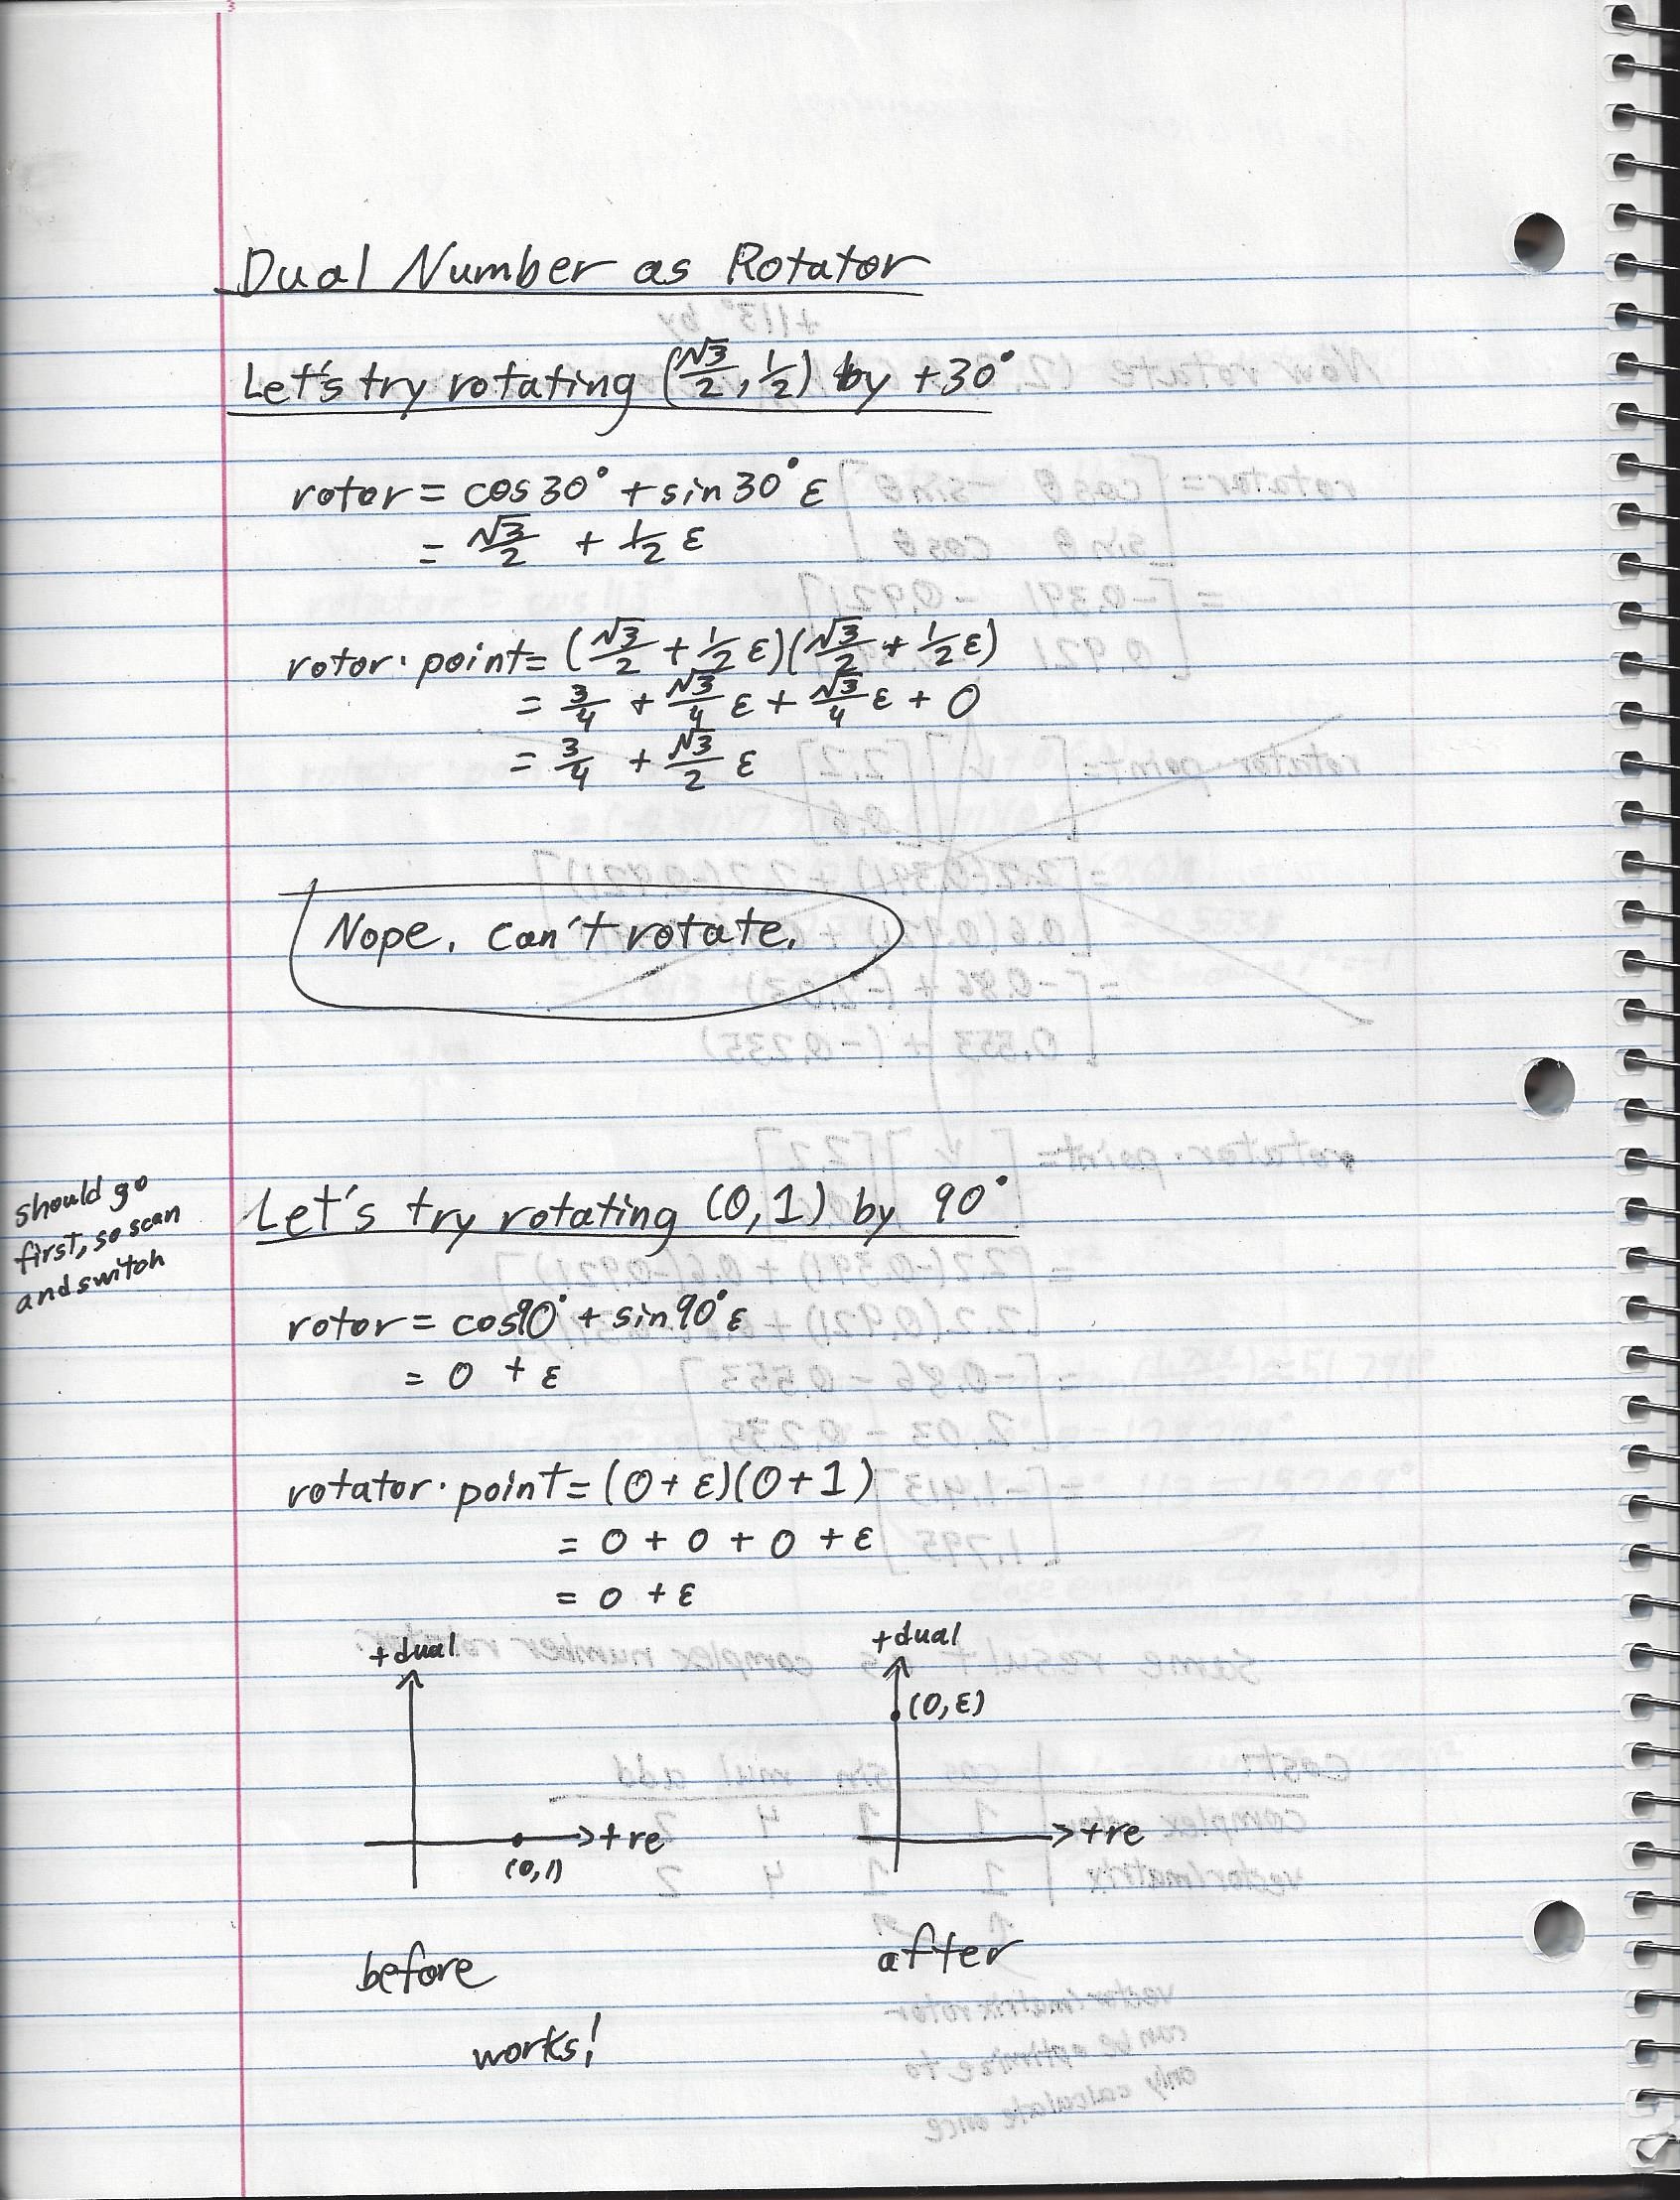 Dual Number as Rotator
Let's try rotating (√3/2, 1/2) by +30°
rotor = cos30° + sin30°ε
= √3/2 + 1/2 ε
rotor · point = (√3/2 + 1/2 ε)(√3/2 + 1/2 ε)
= 3/4 + √3/4 ε + √3/4 ε + 0
= 3/4 + √3/2 ε
Nope, can't rotate.
should go
first, so scan
and switch
Let's try rotating (0,1) by 90°
rotor = cos90° + sin90°ε
= 0 + ε
rotator · point = (0+ε)(0+1)
= 0 + 0 + 0 + ε
= 0 + ε
+dual
+re
(0,1)
before
+dual
(0,ε)
+re
after
works!